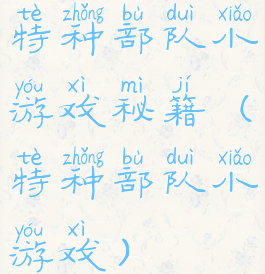 tè zhǒng bù duì xiǎo
特种部队小
yóu xì mì jí
游戏秘籍（
tè zhǒng bù duì xiǎo
特种部队小
yóu xì
游戏）